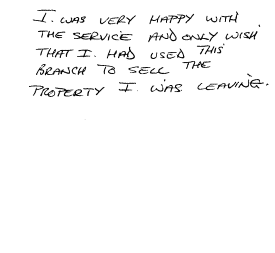 I. WAS VERY HAPPY WITH
THE SERVICE AND ONLY WISH
THAT I. HAD USED THIS
BRANCH TO SELL THE
PROPERTY I WAS LEAVING.